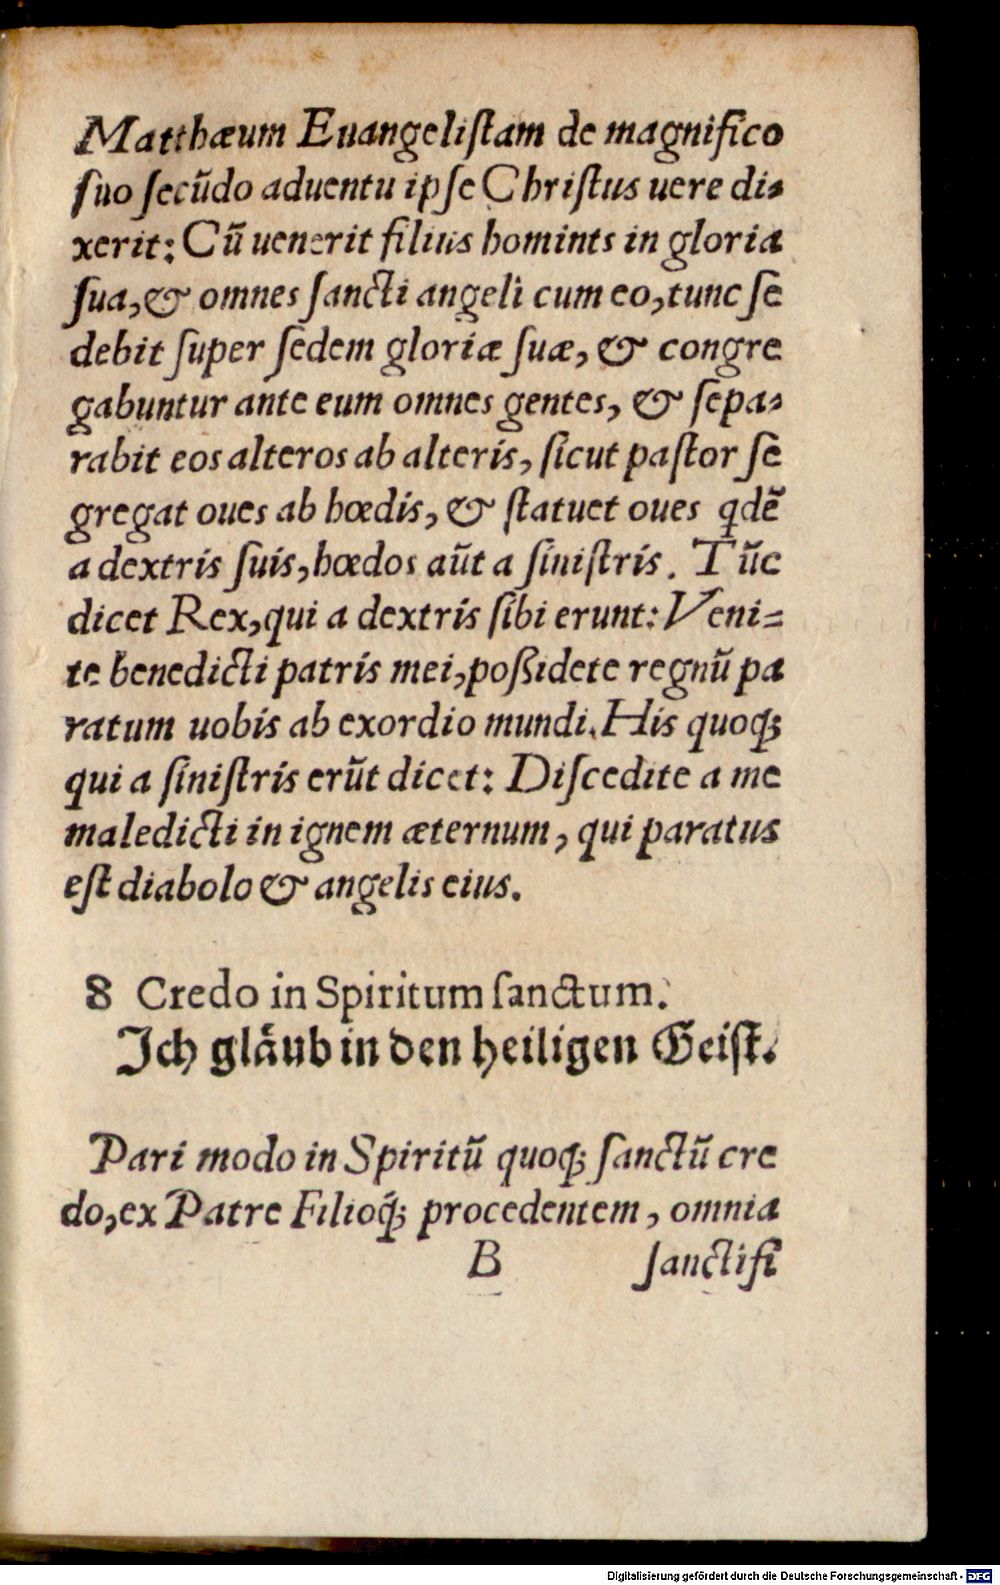 Matthæum Euangeliſtam de magnifico
ſuo ſecūdo aduentu ipſe Chriſtus uere di-
xerit: Cū uenerit filius hominis in gloria
ſua, & omnes ſancti angeli cum eo, tunc ſe
debit ſuper ſedem gloriæ ſuæ, & congre
gabuntur ante eum omnes gentes, & ſepa-
rabit eos alteros ab alteris, ſicut paſtor ſe
gregat oues ab hœdis, & ſtatuet oues qdē
a dextris ſuis, hœdos aūt a ſiniſtris. Tūc
dicet Rex, qui a dextris ſibi erunt: Veni=
te benedicti patris mei, poßidete regnū pa
ratum uobis ab exordio mundi. His quoq;
qui a ſiniſtris erūt dicet: Diſcedite a me
maledicti in ignem æternum, qui paratus
eſt diabolo & angelis eius.
8 Credo in Spiritum ſanctum.
Ich glaͤub in den heiligen Geiſt.
Pari modo in Spiritū quoq; ſanctū cre
do, ex Patre Filioq́; procedentem, omnia
B ſanctifi
Digitalisierung gefördert durch die Deutsche Forschungsgemeinschaft - DFG